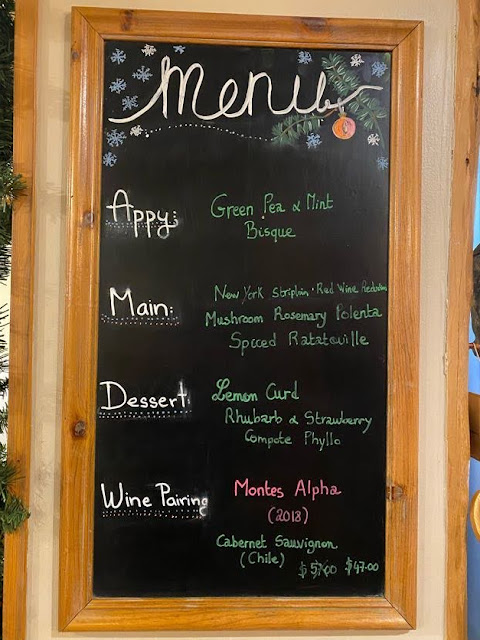 Menu
Appy: Green Pea & Mint
Bisque
Main: New York Striploin · Red Wine Reduction
Mushroom Rosemary Polenta
Spiced Ratatouille
Dessert Lemon Curd
Rhubarb & Strawberry
Compote Phyllo
Wine Pairing Montes Alpha
(2018)
Cabernet Sauvignon
(Chile) $57.00 $47.00